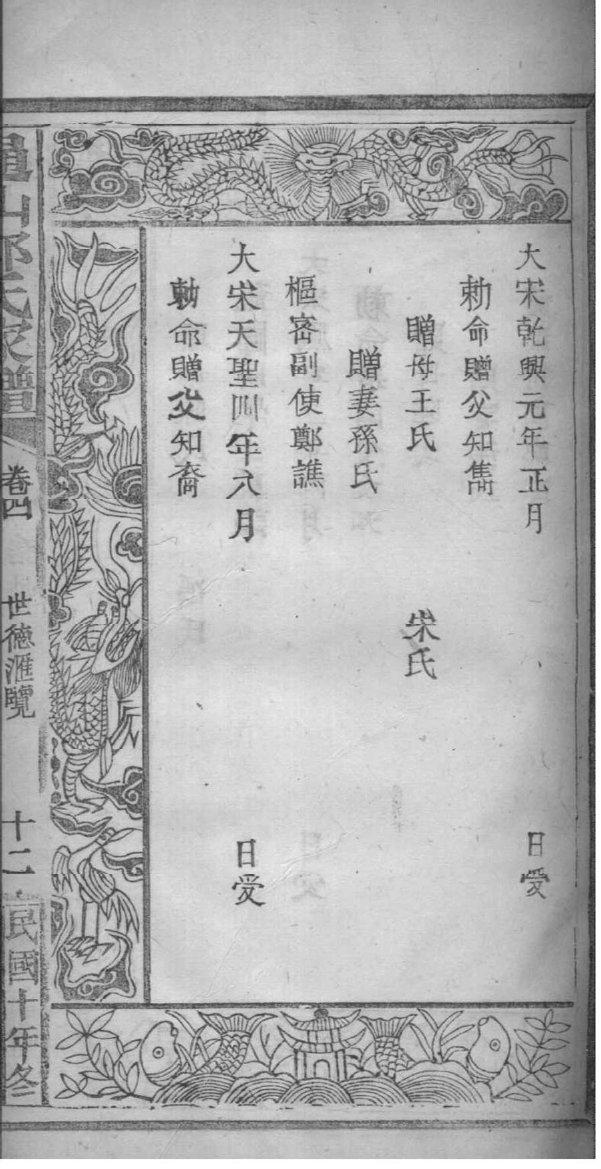 大宋乾興元年正月　日受
勅命贈父知雋
贈母王氏　宋氏
贈妻孫氏
樞宻副使鄭譙
大宋天聖四年六月　日受
勅命贈父知裔
山鄭氏家譜
卷四
世徳滙覽
十二
民國十年冬